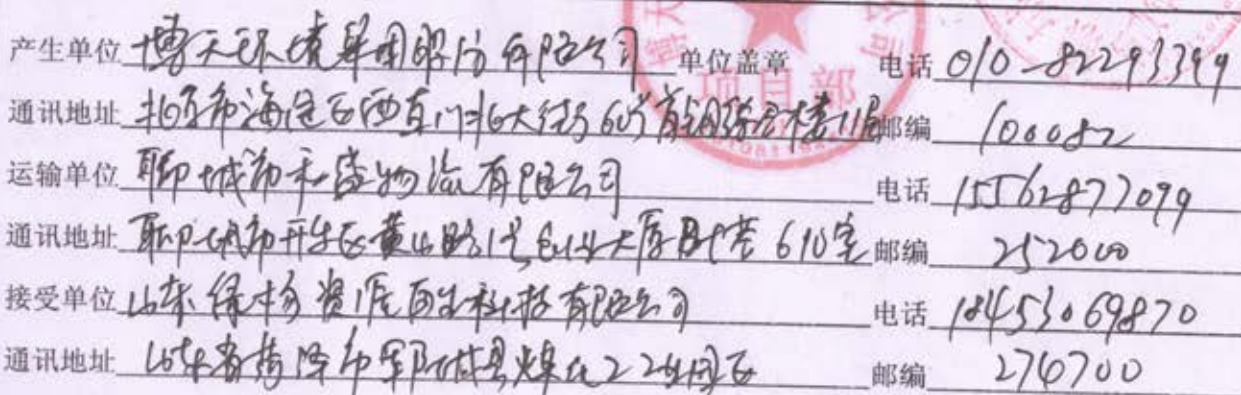 产生单位 博天环境集团股份有限公司 单位盖章 电话 010-82293399
通讯地址 北京市海淀区西直门北大街60号首钢综合楼11层 邮编 100082
运输单位 聊城市禾盛物流有限公司 电话 15562877099
通讯地址 聊城市开发区黄山路1号 大厦 610室 邮编 252000
接受单位 山东绿杨资源再生科技有限公司 电话 18453069870
通讯地址 山东省菏泽市郓城县煤化工工业园区 邮编 274700
项目部